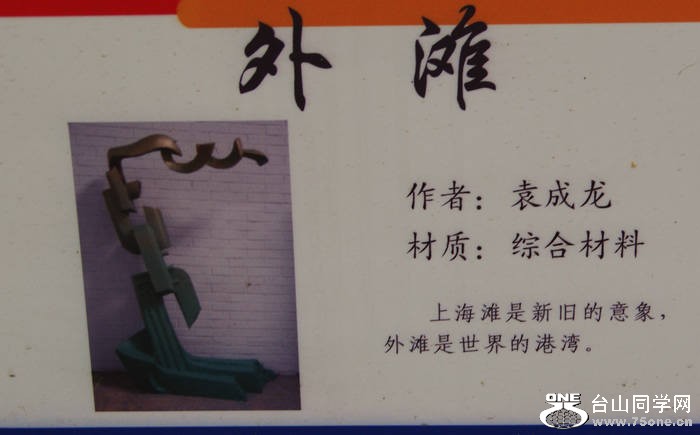 外滩
作者：袁成龙
材质：综合材料
上海滩是新旧的意象，
外滩是世界的港湾。
ONE
台山同学网
www.75one.cn